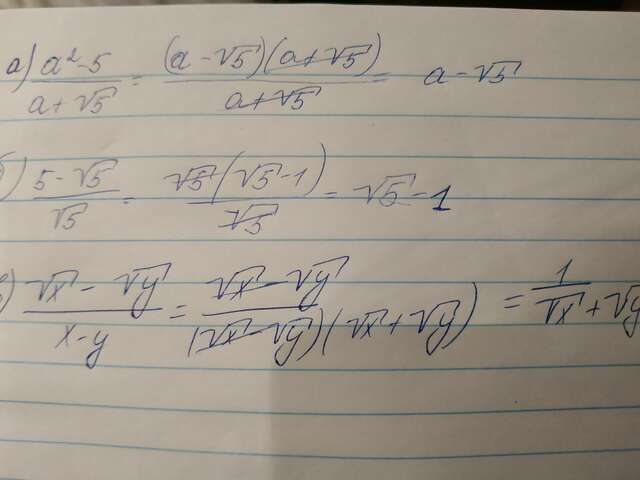 а) (a²-5)/(a+√5) = ((a-√5)(a+√5))/(a+√5) = a-√5
б) (5-√5)/√5 = (√5(√5-1))/√5 = √5-1
в) (√x-√y)/(x-y) = (√x-√y)/((√x-√y)(√x+√y)) = 1/(√x+√y)